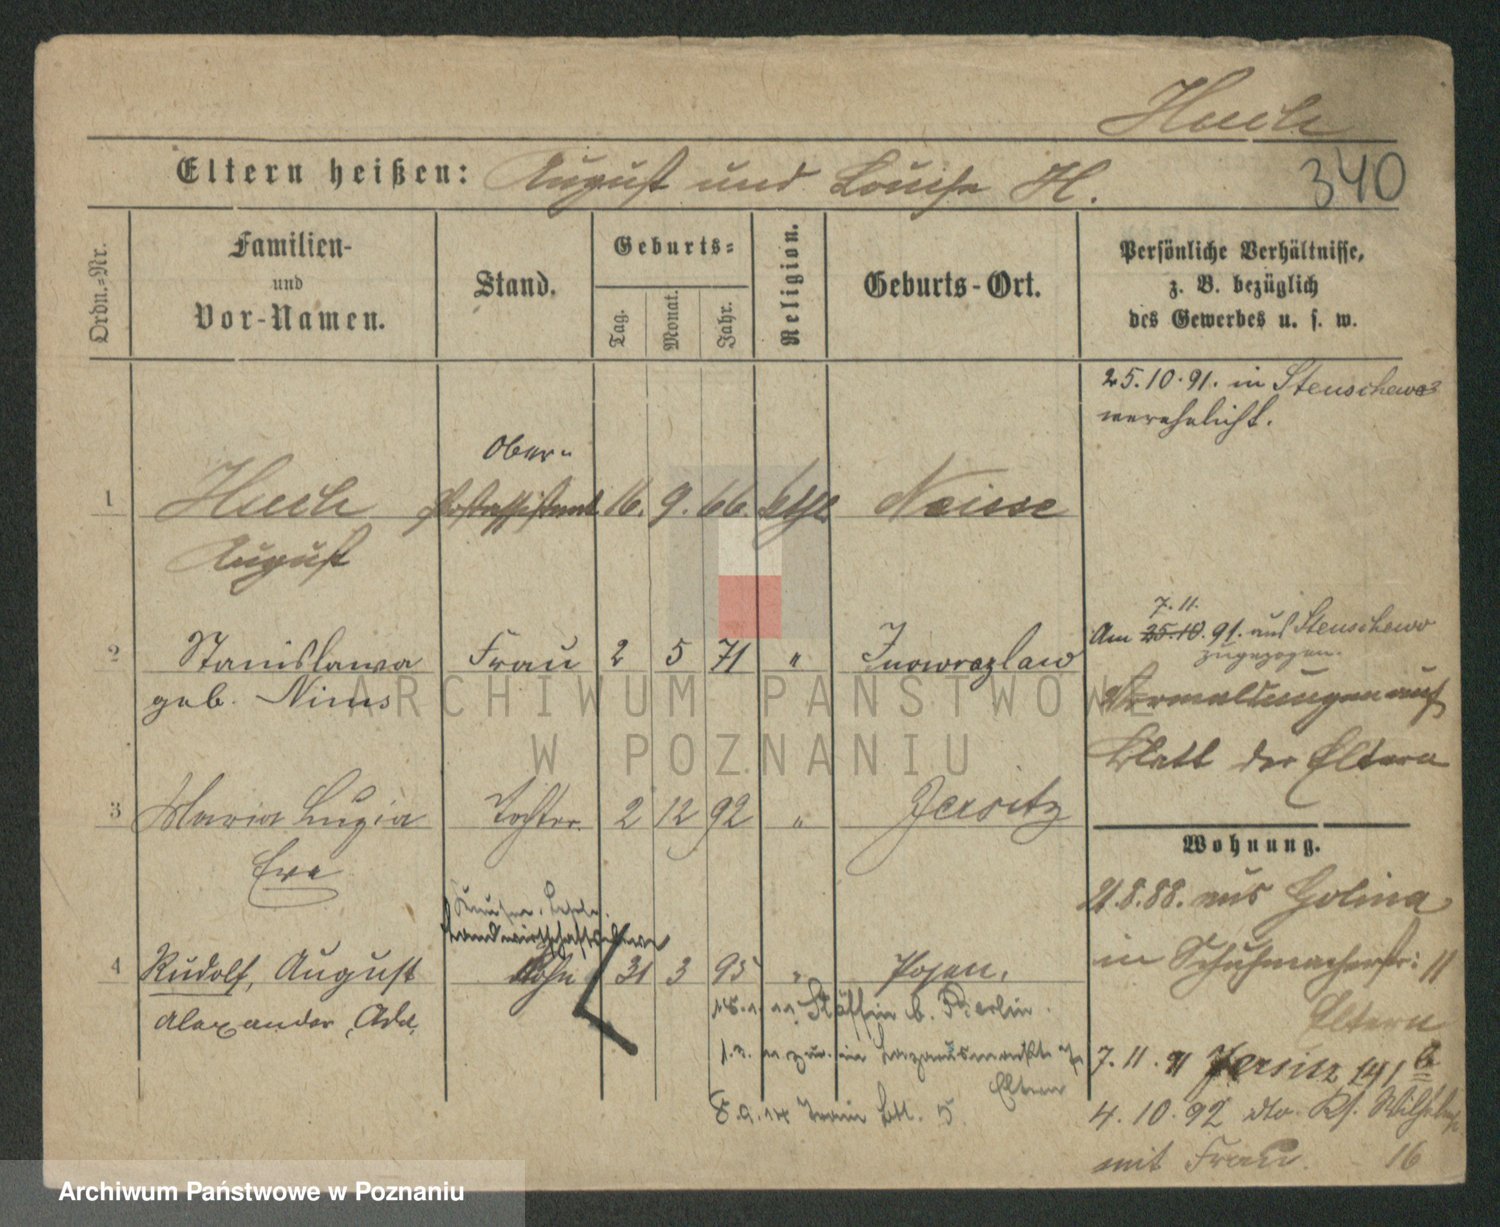 Hueh
340
Eltern heißen: August und Louise H.
Ordn.-Nr.
Familien-
und
Vor-Namen.
Stand.
Geburts-
Tag.
Monat.
Jahr.
Religion.
Geburts-Ort.
Persönliche Verhältnisse,
z. B. bezüglich
des Gewerbes u. s. w.
25.10.91. in Stenschewo
verehelicht.
Ober-
1 Hueh Postassistent 16. 9. 66. kth Neisse
August
7.11.
Am 25.10. 91. aus Stenschewo
zugezogen.
2 Stanislawa Frau 2 5 71 " Inowrazlaw
geb. Nims
Vermeldungen auf
Blatt der Eltern
3 Maria Luzia Tochter 2 12 92 " Jersitz
Eva
Wohnung.
21.8.88. aus Golina
in Schuhmacherstr: 11
Eltern
Landwirtschaftseleve
4 Rudolf, August Sohn 31 3 95 " Posen.
Alexander, Ada.
b. Berlin.
Eltern
7.11.91 Jersitz 141 b
4.10.92 dto. Ks. Wilhelmstr
mit Frau. 16
ARCHIWUM PAŃSTWOWE
W POZNANIU
Archiwum Państwowe w Poznaniu